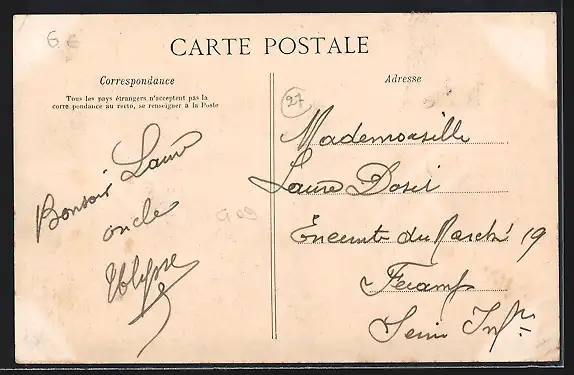 G E
CARTE POSTALE
Correspondance
Tous les pays étrangers n'acceptent pas la
correspondance au recto, se renseigner à la Poste
Bonsoir Laure
oncle
Ulysse
Adresse
27
Mademoiselle
Laure
Enceinte du Marché 19
Fécamp
Seine Infre